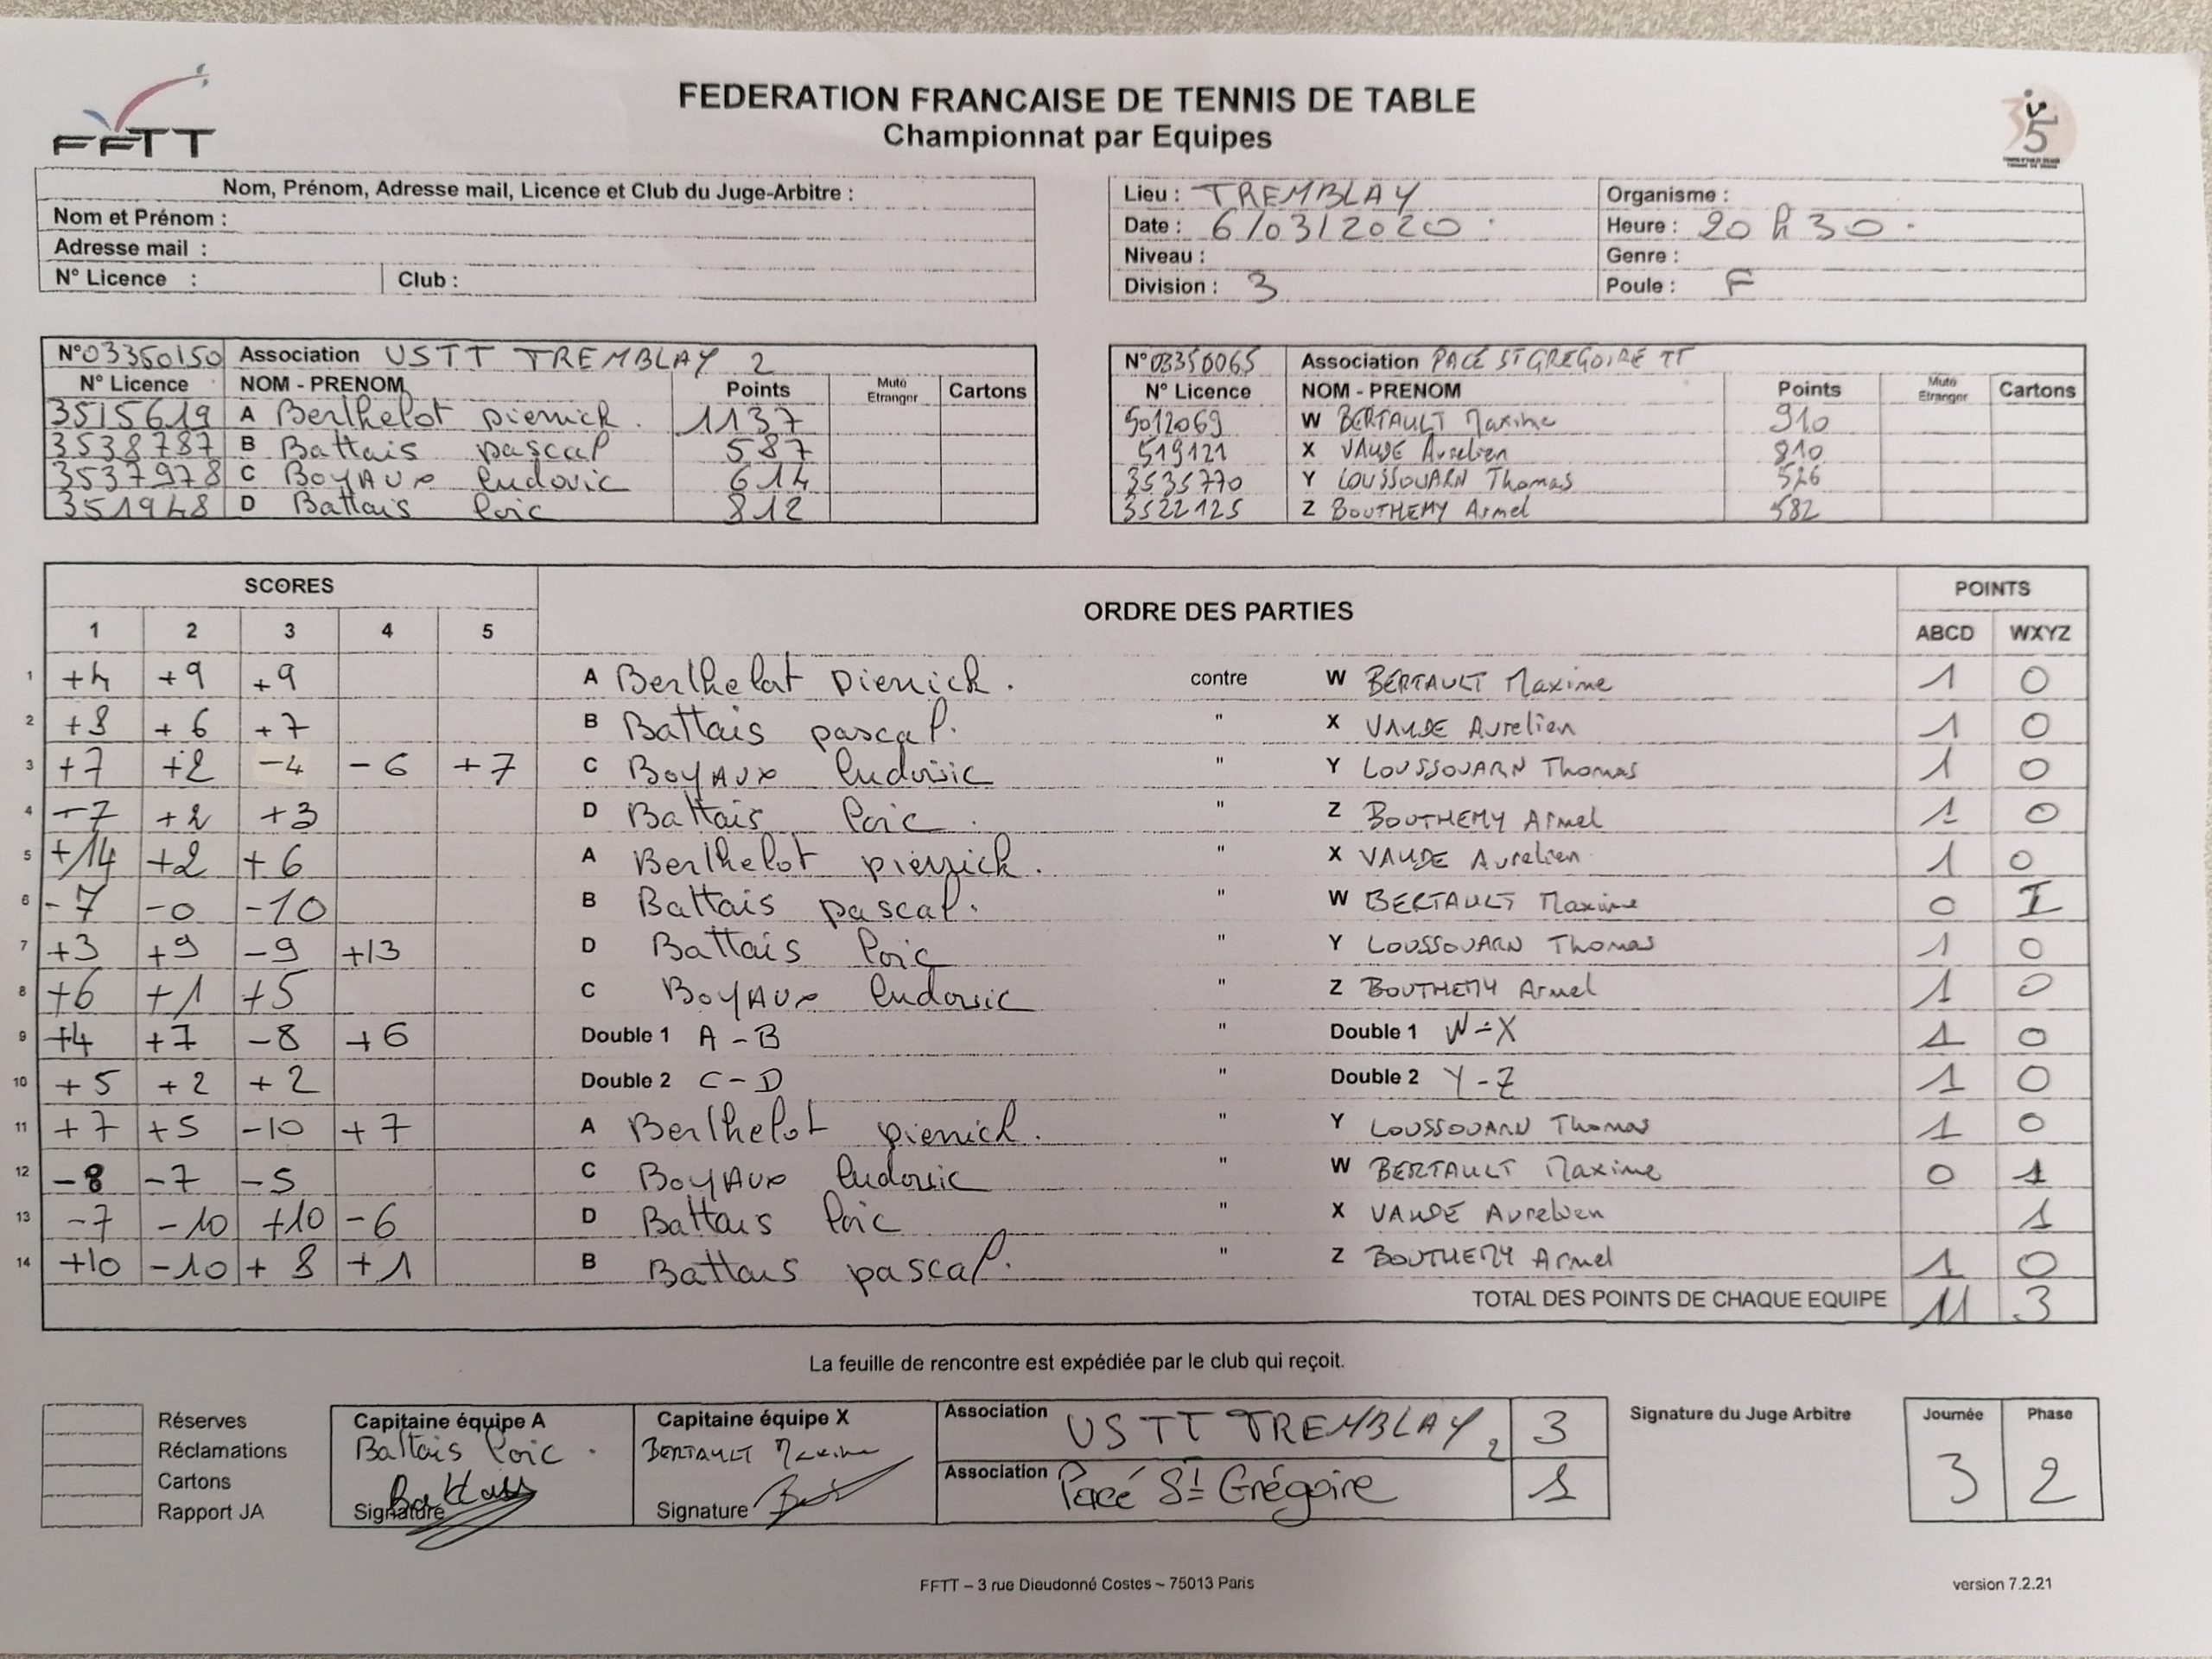 FEDERATION FRANCAISE DE TENNIS DE TABLE
Championnat par Equipes
FFTT
35
Nom, Prénom, Adresse mail, Licence et Club du Juge-Arbitre :
Nom et Prénom :
Adresse mail :
N° Licence : Club :
Lieu : TREMBLAY Organisme :
Date : 6/03/2020 Heure : 20 h 30
Niveau : Genre :
Division : 3 Poule : F
N° 03350150 Association USTT TREMBLAY 2
N° Licence NOM - PRENOM Points Muté Etranger Cartons
3515619 A Berthelot pierrick. 1137
3538787 B Battais pascal 587
3537978 C BOYAUX ludovic 614
351948 D Battais loic 812
N° 03350065 Association PACÉ ST GREGOIRE TT
N° Licence NOM - PRENOM Points Muté Etranger Cartons
5012069 W BERTAULT Maxime 910
519121 X VAUDE Aurelien 810
3535770 Y LOUSSOUARN Thomas 526
3522125 Z BOUTHEMY Armel 582
SCORES ORDRE DES PARTIES POINTS
1 2 3 4 5 ABCD WXYZ
1 +4 +9 +9 A Berthelot pierrick. contre W BERTAULT Maxime 1 0
2 +8 +6 +7 B Battais pascal. " X VAUDE Aurelien 1 0
3 +7 +2 -4 -6 +7 C BOYAUX ludovic " Y LOUSSOUARN Thomas 1 0
4 +7 +2 +3 D Battais loic. " Z BOUTHEMY Armel 1 0
5 +14 +2 +6 A Berthelot pierrick. " X VAUDE Aurelien 1 0
6 -7 -0 -10 B Battais pascal. " W BERTAULT Maxime 0 I
7 +3 +9 -9 +13 D Battais loic " Y LOUSSOUARN Thomas 1 0
8 +6 +1 +5 C BOYAUX ludovic " Z BOUTHEMY Armel 1 0
9 +4 +7 -8 +6 Double 1 A - B " Double 1 W - X 1 0
10 +5 +2 +2 Double 2 C - D " Double 2 Y - Z 1 0
11 +7 +5 -10 +7 A Berthelot pierrick. " Y LOUSSOUARN Thomas 1 0
12 -8 -7 -5 C BOYAUX ludovic " W BERTAULT Maxime 0 1
13 -7 -10 +10 -6 D Battais loic " X VAUDE Aurelien 1
14 +10 -10 +8 +1 B Battais pascal. " Z BOUTHEMY Armel 1 0
TOTAL DES POINTS DE CHAQUE EQUIPE 11 3
La feuille de rencontre est expédiée par le club qui reçoit.
Réserves
Réclamations
Cartons
Rapport JA
Capitaine équipe A
Battais loic.
Signature Battais
Capitaine équipe X
BERTAULT Maxime
Signature
Association USTT TREMBLAY 2 3
Association Pacé St Grégoire 1
Signature du Juge Arbitre
Journée Phase
3 2
FFTT – 3 rue Dieudonné Costes ~ 75013 Paris
version 7.2.21